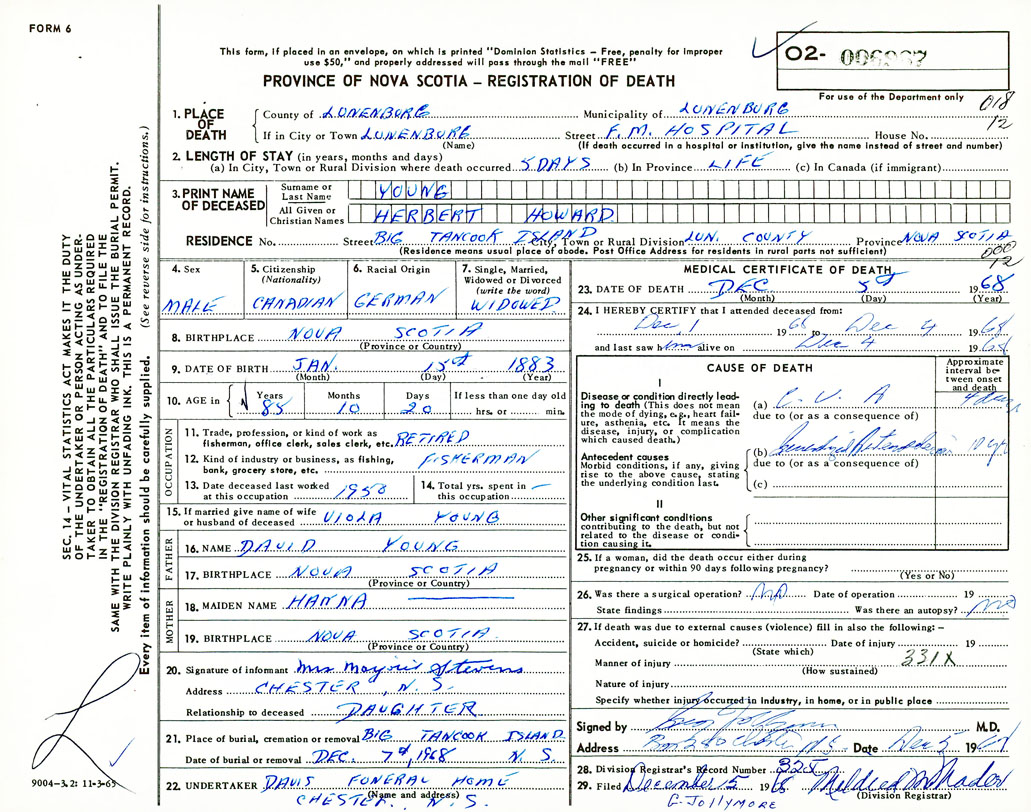 FORM 6
This form, if placed in an envelope, on which is printed "Dominion Statistics – Free, penalty for improper
use $50," and properly addressed will pass through the mail "FREE"
PROVINCE OF NOVA SCOTIA – REGISTRATION OF DEATH
02-
For use of the Department only
018
12
SEC. 14 – VITAL STATISTICS ACT MAKES IT THE DUTY
OF THE UNDERTAKER OR PERSON ACTING AS UNDER-
TAKER TO OBTAIN ALL THE PARTICULARS REQUIRED
IN THE "REGISTRATION OF DEATH" AND TO FILE THE
SAME WITH THE DIVISION REGISTRAR WHO SHALL ISSUE THE BURIAL PERMIT.
WRITE PLAINLY WITH UNFADING INK. THIS IS A PERMANENT RECORD.
Every item of information should be carefully supplied. (See reverse side for instructions.)
1. PLACE OF DEATH
County of LUNENBURG Municipality of LUNENBURG
If in City or Town LUNENBURG Street F.M. HOSPITAL House No.
(Name) (If death occurred in a hospital or institution, give the name instead of street and number)
2. LENGTH OF STAY (in years, months and days)
(a) In City, Town or Rural Division where death occurred 5 DAYS (b) In Province LIFE (c) In Canada (if immigrant)
3. PRINT NAME OF DECEASED
Surname or Last Name YOUNG
All Given or Christian Names HERBERT HOWARD
RESIDENCE No. Street BIG TANCOOK ISLAND City, Town or Rural Division LUN. COUNTY Province NOVA SCOTIA
(Residence means usual place of abode. Post Office Address for residents in rural parts not sufficient)
000
12
4. Sex
MALE
5. Citizenship
(Nationality)
CANADIAN
6. Racial Origin
GERMAN
7. Single, Married,
Widowed or Divorced
(write the word)
WIDOWED
8. BIRTHPLACE NOVA SCOTIA
(Province or Country)
9. DATE OF BIRTH JAN. 15st 1883
(Month) (Day) (Year)
10. AGE in Years Months Days If less than one day old
85 10 20 hrs. or min.
OCCUPATION
11. Trade, profession, or kind of work as
fisherman, office clerk, sales clerk, etc. RETIRED
12. Kind of industry or business, as fishing,
bank, grocery store, etc. FISHERMAN
13. Date deceased last worked
at this occupation 1950
14. Total yrs. spent in
this occupation –
15. If married give name of wife
or husband of deceased VIOLA YOUNG
FATHER
16. NAME DAVID YOUNG
17. BIRTHPLACE NOVA SCOTIA
(Province or Country)
MOTHER
18. MAIDEN NAME HANNA
19. BIRTHPLACE NOVA SCOTIA
(Province or Country)
20. Signature of informant Mrs Stevens
Address CHESTER, N.S.
Relationship to deceased DAUGHTER
21. Place of burial, cremation or removal BIG TANCOOK ISLAND
Date of burial or removal DEC. 7th, 1968 N.S.
22. UNDERTAKER DAVIS FUNERAL HOME
(Name and address)
CHESTER, N.S.
9004–3.2: 11-3-65
MEDICAL CERTIFICATE OF DEATH
23. DATE OF DEATH DEC 5st 1968
(Month) (Day) (Year)
24. I HEREBY CERTIFY that I attended deceased from:
Dec 1 1968 to Dec 4 1968
and last saw him alive on Dec 4 1968
CAUSE OF DEATH
Approximate
interval be-
tween onset
and death
I
Disease or condition directly lead-
ing to death (This does not mean
the mode of dying, e.g., heart fail-
ure, asthenia, etc. It means the
disease, injury, or complication
which caused death.)
(a) C. V. A 4 days
due to (or as a consequence of)
Antecedent causes
Morbid conditions, if any, giving
rise to the above cause, stating
the underlying condition last.
(b) 10 yr
due to (or as a consequence of)
(c)
II
Other significant conditions
contributing to the death, but not
related to the disease or condi-
tion causing it.
25. If a woman, did the death occur either during
pregnancy or within 90 days following pregnancy?
(Yes or No)
26. Was there a surgical operation? no Date of operation 19
State findings Was there an autopsy? no
27. If death was due to external causes (violence) fill in also the following: –
Accident, suicide or homicide? Date of injury 19
(State which)
Manner of injury 331X
(How sustained)
Nature of injury
Specify whether injury occurred in Industry, in home, or in public place
Signed by M.D.
Address Date Dec 5 19
28. Division Registrar's Record Number 325
29. Filed December 5 1968 Mildred
(Division Registrar)
G. JOLLYMORE